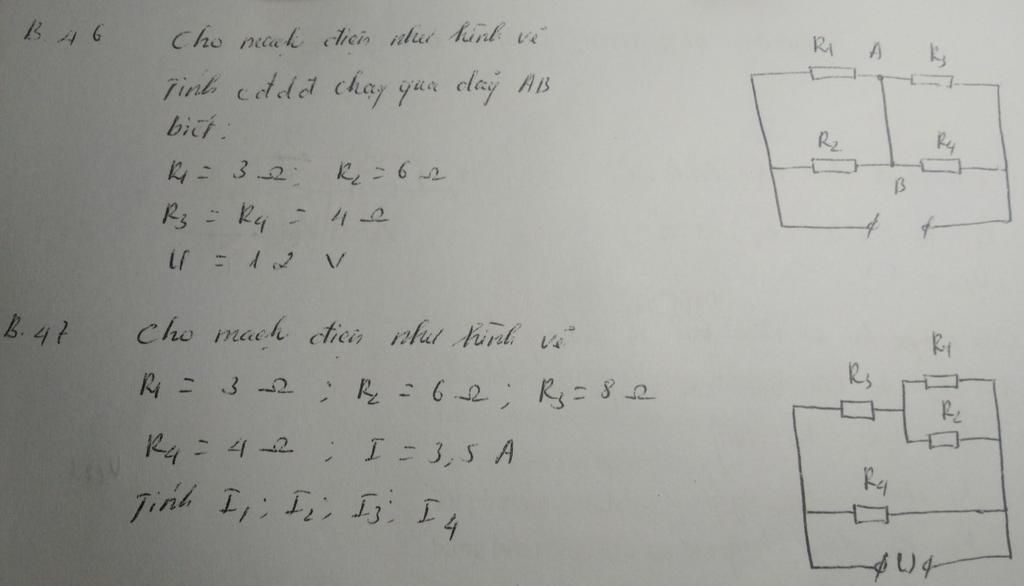 B.46 Cho mạch điện như hình vẽ
Tính cđdđ chạy qua dây AB
biết:
R1 = 3 Ω; R2 = 6 Ω
R3 = R4 = 4 Ω
U = 12 V
R1 A R3
R2 R4
B
B.47 Cho mạch điện như hình vẽ
R1 = 3 Ω ; R2 = 6 Ω ; R3 = 8 Ω
R4 = 4 Ω ; I = 3,5 A
Tính I1; I2; I3; I4
R1
R3
R2
R4
U